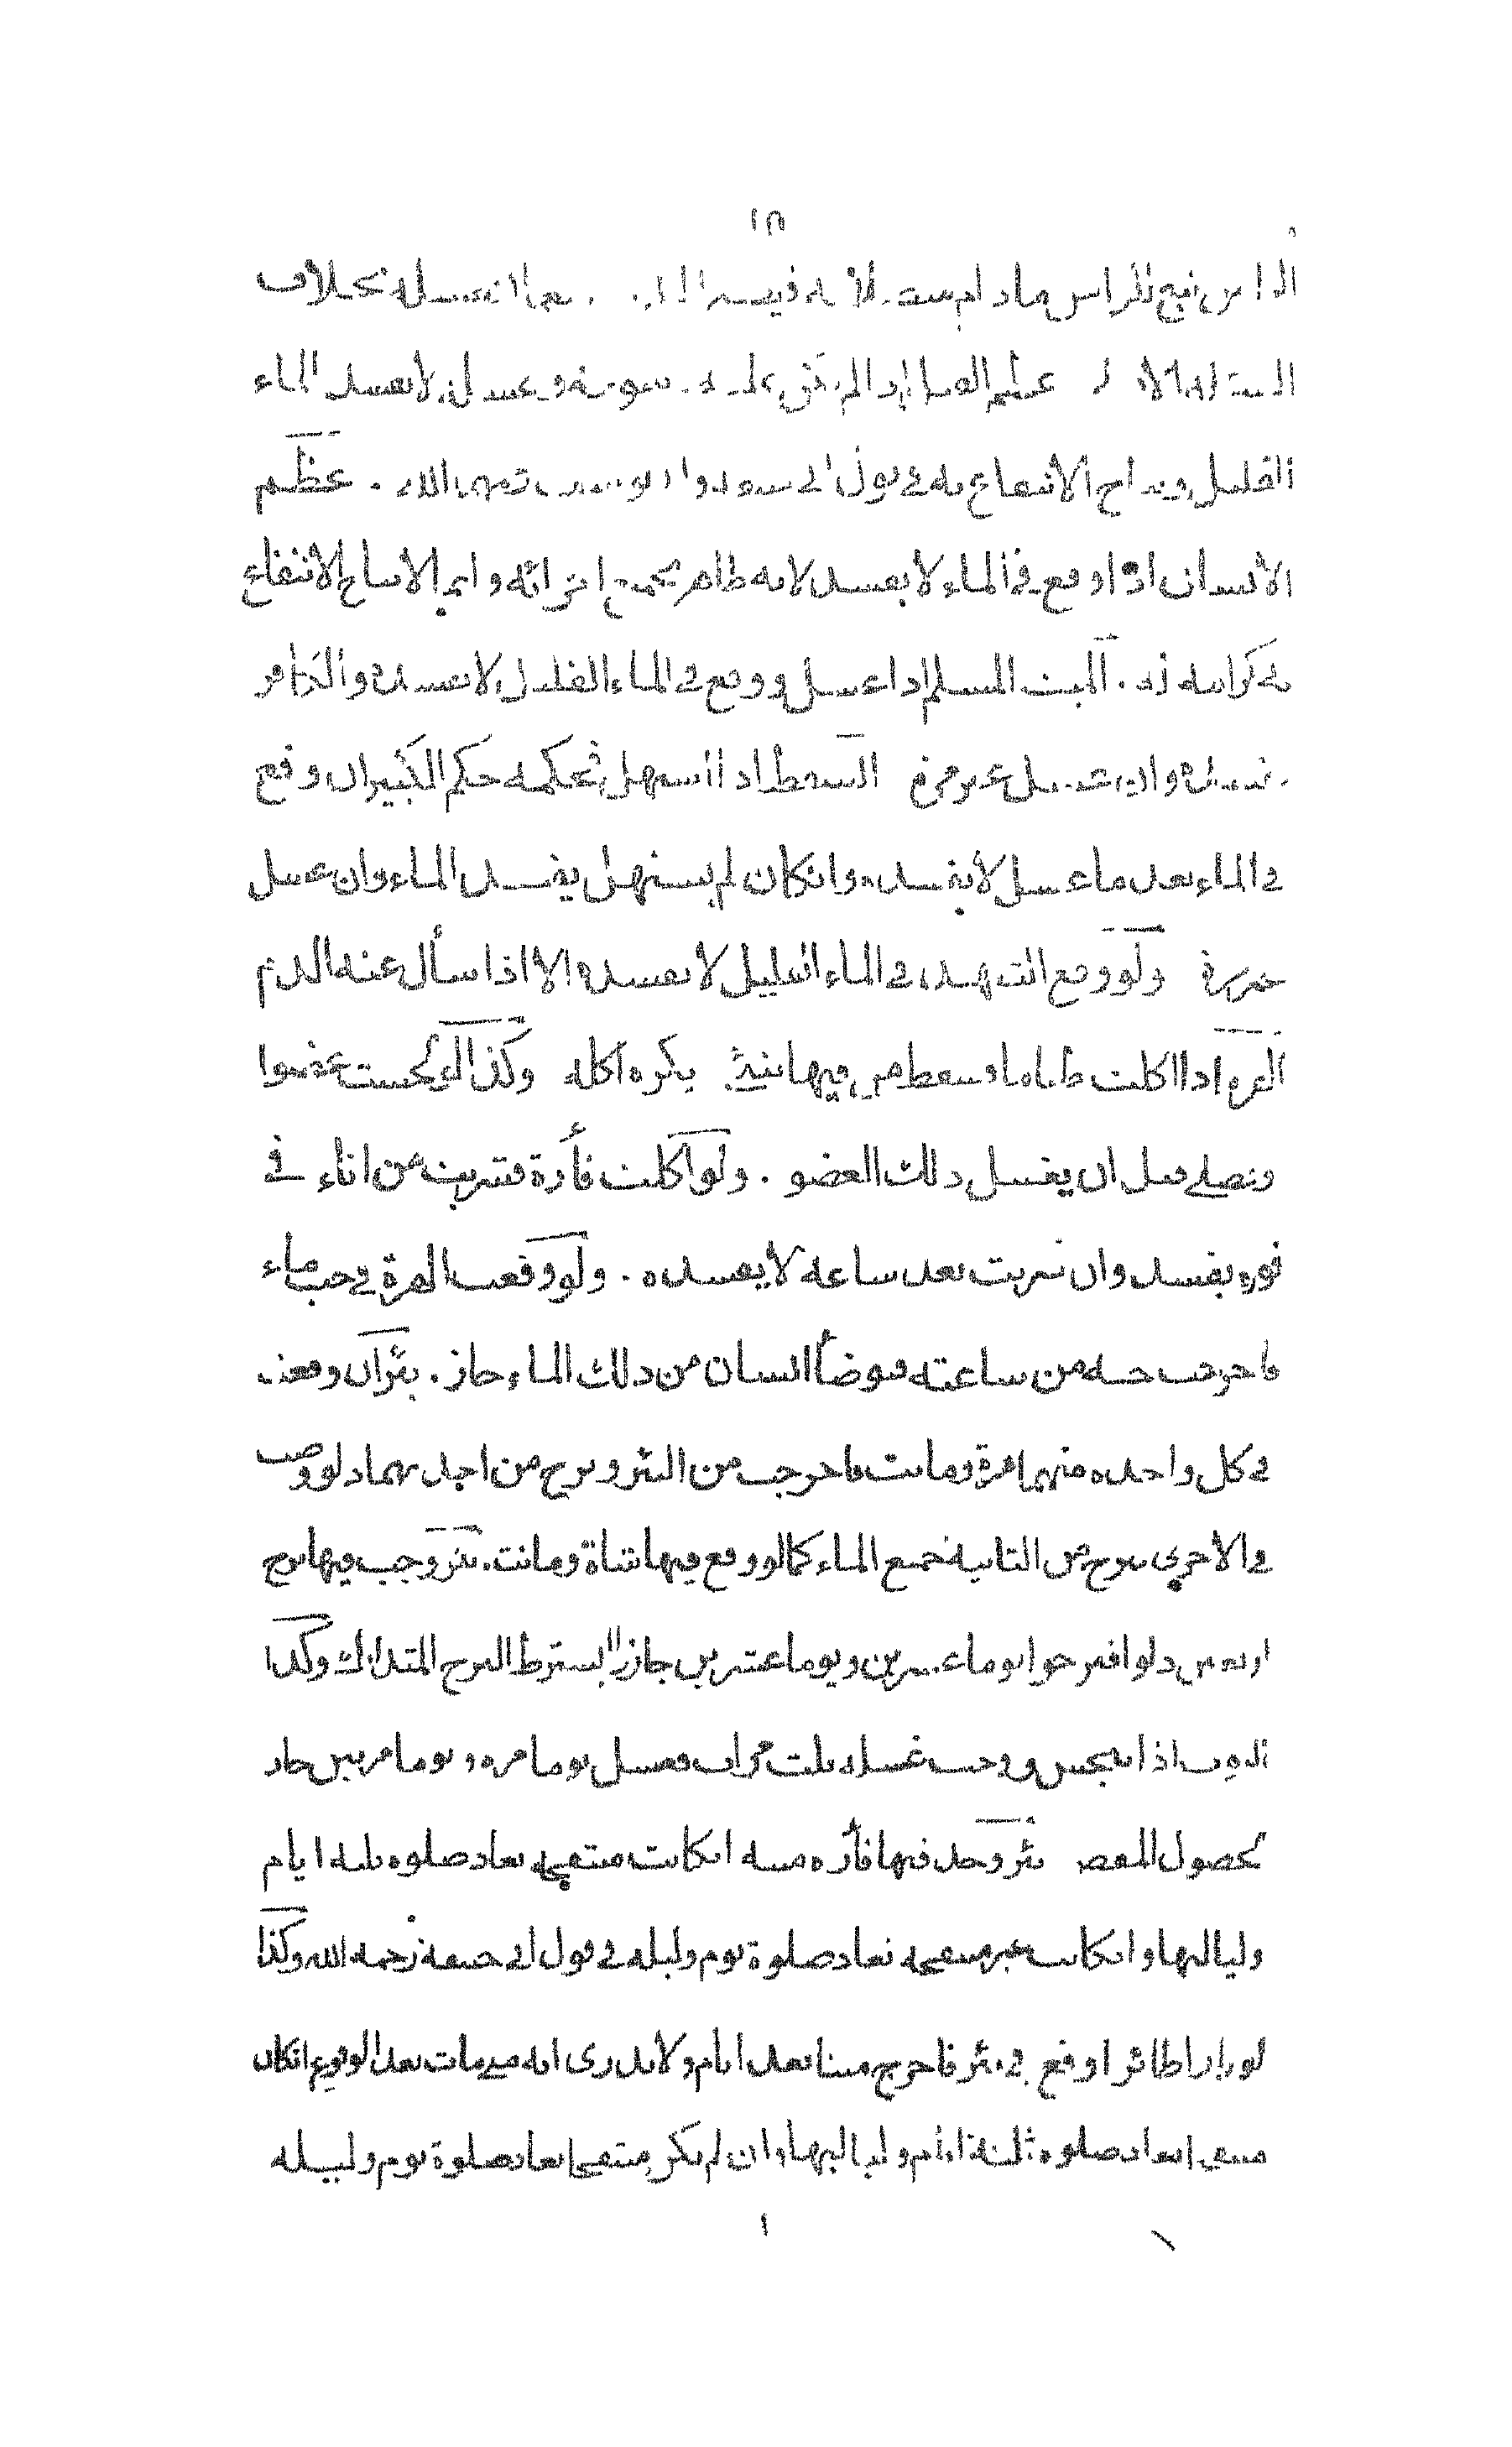 ١٣
الراس تبع للراس مادام متصلا به بخلاف
عظيم الفيل اذا لم يكن عليه دسومة وغسل لا يفسد الماء
القليل ويباح الانتفاع به في قول ابي حنيفة وابي يوسف رحمهما الله . عظم
الانسان اذا وقع في الماء لا يفسد لانه طاهر بجميع اجزائه وانما لا يباح الانتفاع
لكرامته . الميت المسلم اذا غسل ووقع في الماء القليل لا يفسده والكافر
يفسده وان غسل غير مرة السقط اذا استهل فحكمه حكم الكبير ان وقع
في الماء بعد ما غسل لا يفسده وانكان لم يستهل يفسد الماء وان غسل
غير مرة ولو وقع الشهيد في الماء القليل لا يفسده الا اذا سأل عنه الدم
الهرة اذا اكلت طعاما وسقط من فيها شيء يكره اكله وكذا لو لحست عضوا
ويصلي قبل ان يغسل ذلك العضو . ولو اكلت فأرة فشربت من اناء في
فوره يفسد وان شربت بعد ساعة لا يفسده . ولو وقعت الهرة في حب ماء
فاخرجت حية من ساعته فتوضأ انسان من ذلك الماء جاز . بئران وقعت
في كل واحدة منهما هرة وماتت فاخرجت من البئر ونزح من احديهما دلو وصب
في الاخرى ينزح من الثانية جميع الماء كما لو وقع فيها شاة وماتت . بئر وجب فيها نزح
اربعين دلوا فنزحوا يوما عشرين ويوما عشرين جاز لا يشترط النزح المتدارك وكذا
الثوب اذا تنجس ووجب غسله ثلث مرات فغسل يوما مرة ويوما مرتين جاز
لحصول المقصود بئر وجد فيها فأرة ميتة انكانت منتفخة يعاد صلوة ثلثة ايام
ولياليها وانكانت غير منتفخة تعاد صلوة يوم وليلة في قول ابي حنيفة رحمه الله وكذا
لو راوا طائرا وقع في بئر فاخرج ميتا بعد ايام ولا يدرى انه متى مات بعد الوقوع انكان
منتفخا يعاد صلوة ثلثة ايام ولياليها وان لم يكن منتفخا يعاد صلوة يوم وليلة